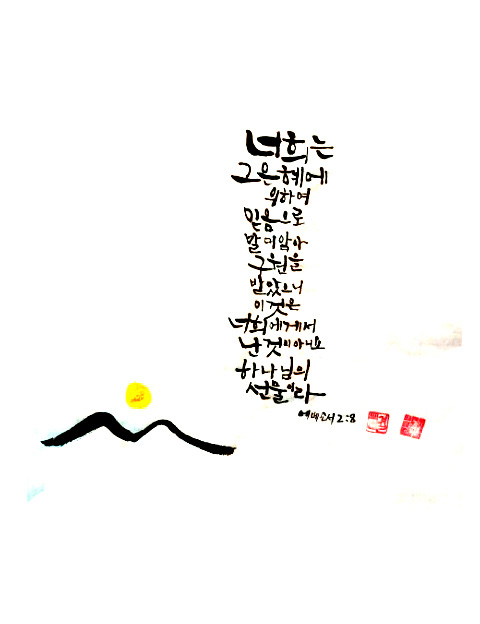 너희는
그 은혜에
의하여
믿음으로
말미암아
구원을
받았으니
이것은
너희에게서
난 것이 아니요
하나님의
선물이라
에베소서 2:8